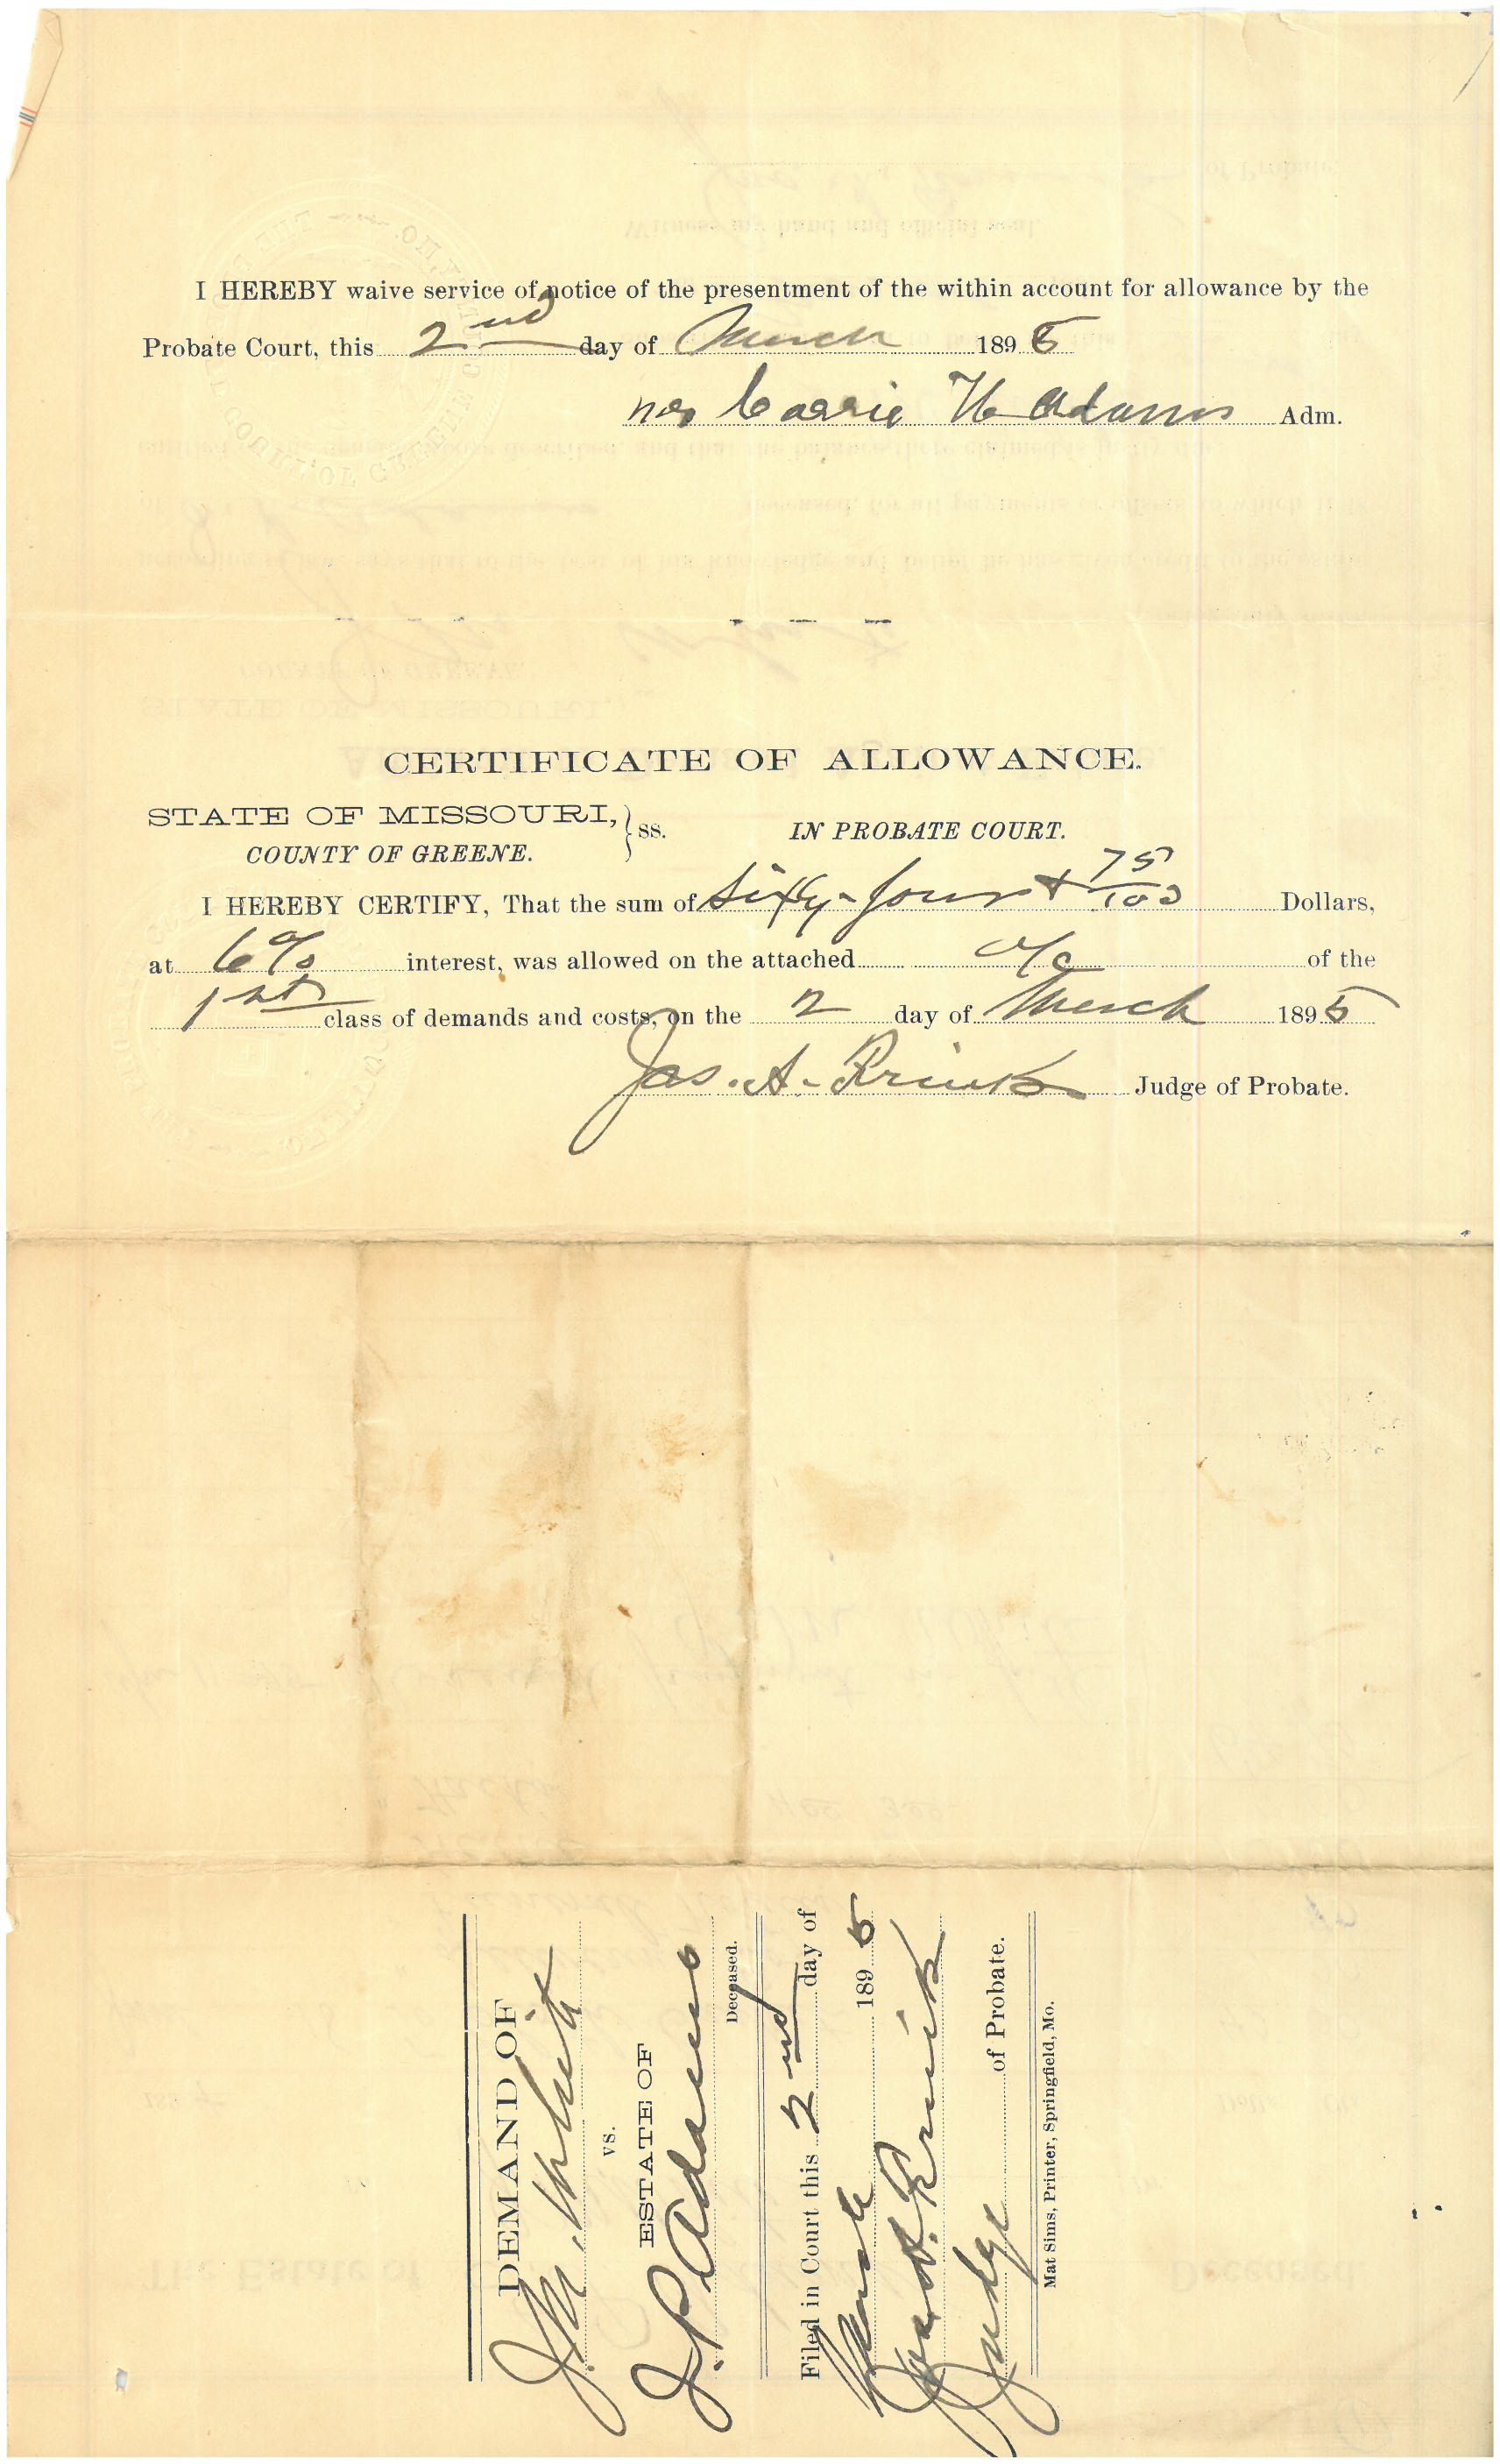 I HEREBY waive service of notice of the presentment of the within account for allowance by the
Probate Court, this 2nd day of March 1895
Mrs Carrie H Adams Adm.
CERTIFICATE OF ALLOWANCE.
STATE OF MISSOURI, } ss. IN PROBATE COURT.
COUNTY OF GREENE.
I HEREBY CERTIFY, That the sum of Sixty-four + 75/100 Dollars,
at 6% interest, was allowed on the attached a/c of the
1st class of demands and costs, on the 2 day of March 1895
Jas. A. Judge of Probate.
DEMAND OF
J. M. White
vs.
ESTATE OF
J. P. Adams
Deceased.
Filed in Court this 2nd day of
March 1895
Jas. A.
Judge of Probate.
Mat Sims, Printer, Springfield, Mo.